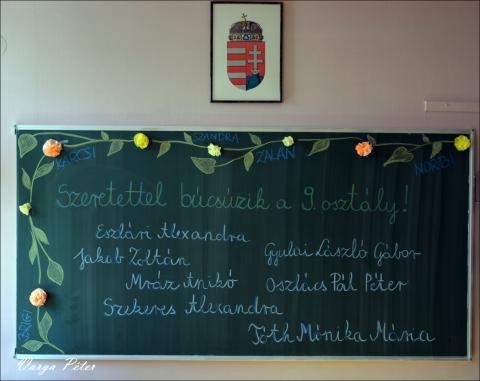 SZANDRA
KARCSI
ZALÁN
NORBI
Szeretettel búcsúzik a 9. osztály!
Eszlári Alexandra
Jakab Zoltán
Gyulai László Gábor
Mráz Anikó
Oszlács Pál Péter
Szekeres Alexandra
Tóth Mónika Mária
BRIGI
Varga Péter